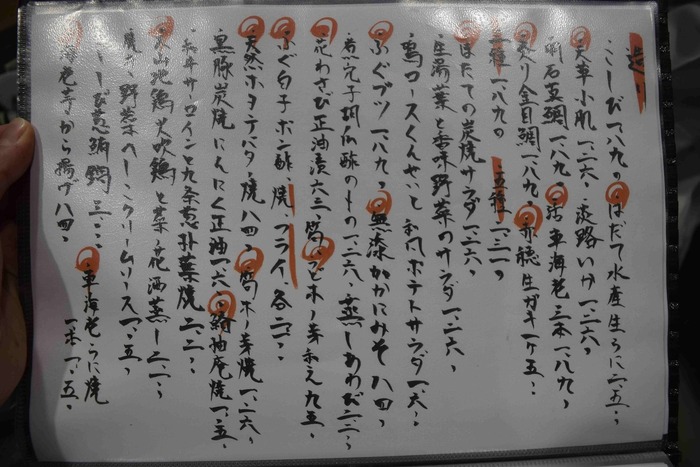 造り
こしび一、八九〇 はだて水産生うに二、五〇〇
天草小肌一、二六〇 淡路いか一、二六〇
明石真鯛一、八九〇 活車海老二本一、八九〇
炙り金目鯛一、八九〇 赤穂生ガキ一ヶ五〇〇
三種一、八九〇 五種
ほたての炭焼サラダ一、二六〇
生湯葉と香味野菜のサラダ一、二六〇
鴨ロースくんせいと和風ポテトサラダ
ふぐブツ一、八九〇 無添かにみそ八四〇
胡瓜酢のもの一、二六〇 蒸しあわび
花わさび正油漬六三〇 木ノ芽和え九五〇
ふぐ白子ポン酢、焼、フライ、各二一〇〇
天然ホタテバター焼八四〇 筍木ノ芽焼一、二六〇
黒豚炭焼にんにく正油 柚庵焼一、五〇〇
サーロインと九条葱
地鶏 と菜ノ花酒蒸し二一〇〇
野菜ベーコンクリームソース一、五〇〇
しび葱鮪鍋
から揚げ八四〇 車海老うに焼
一本一、五〇〇